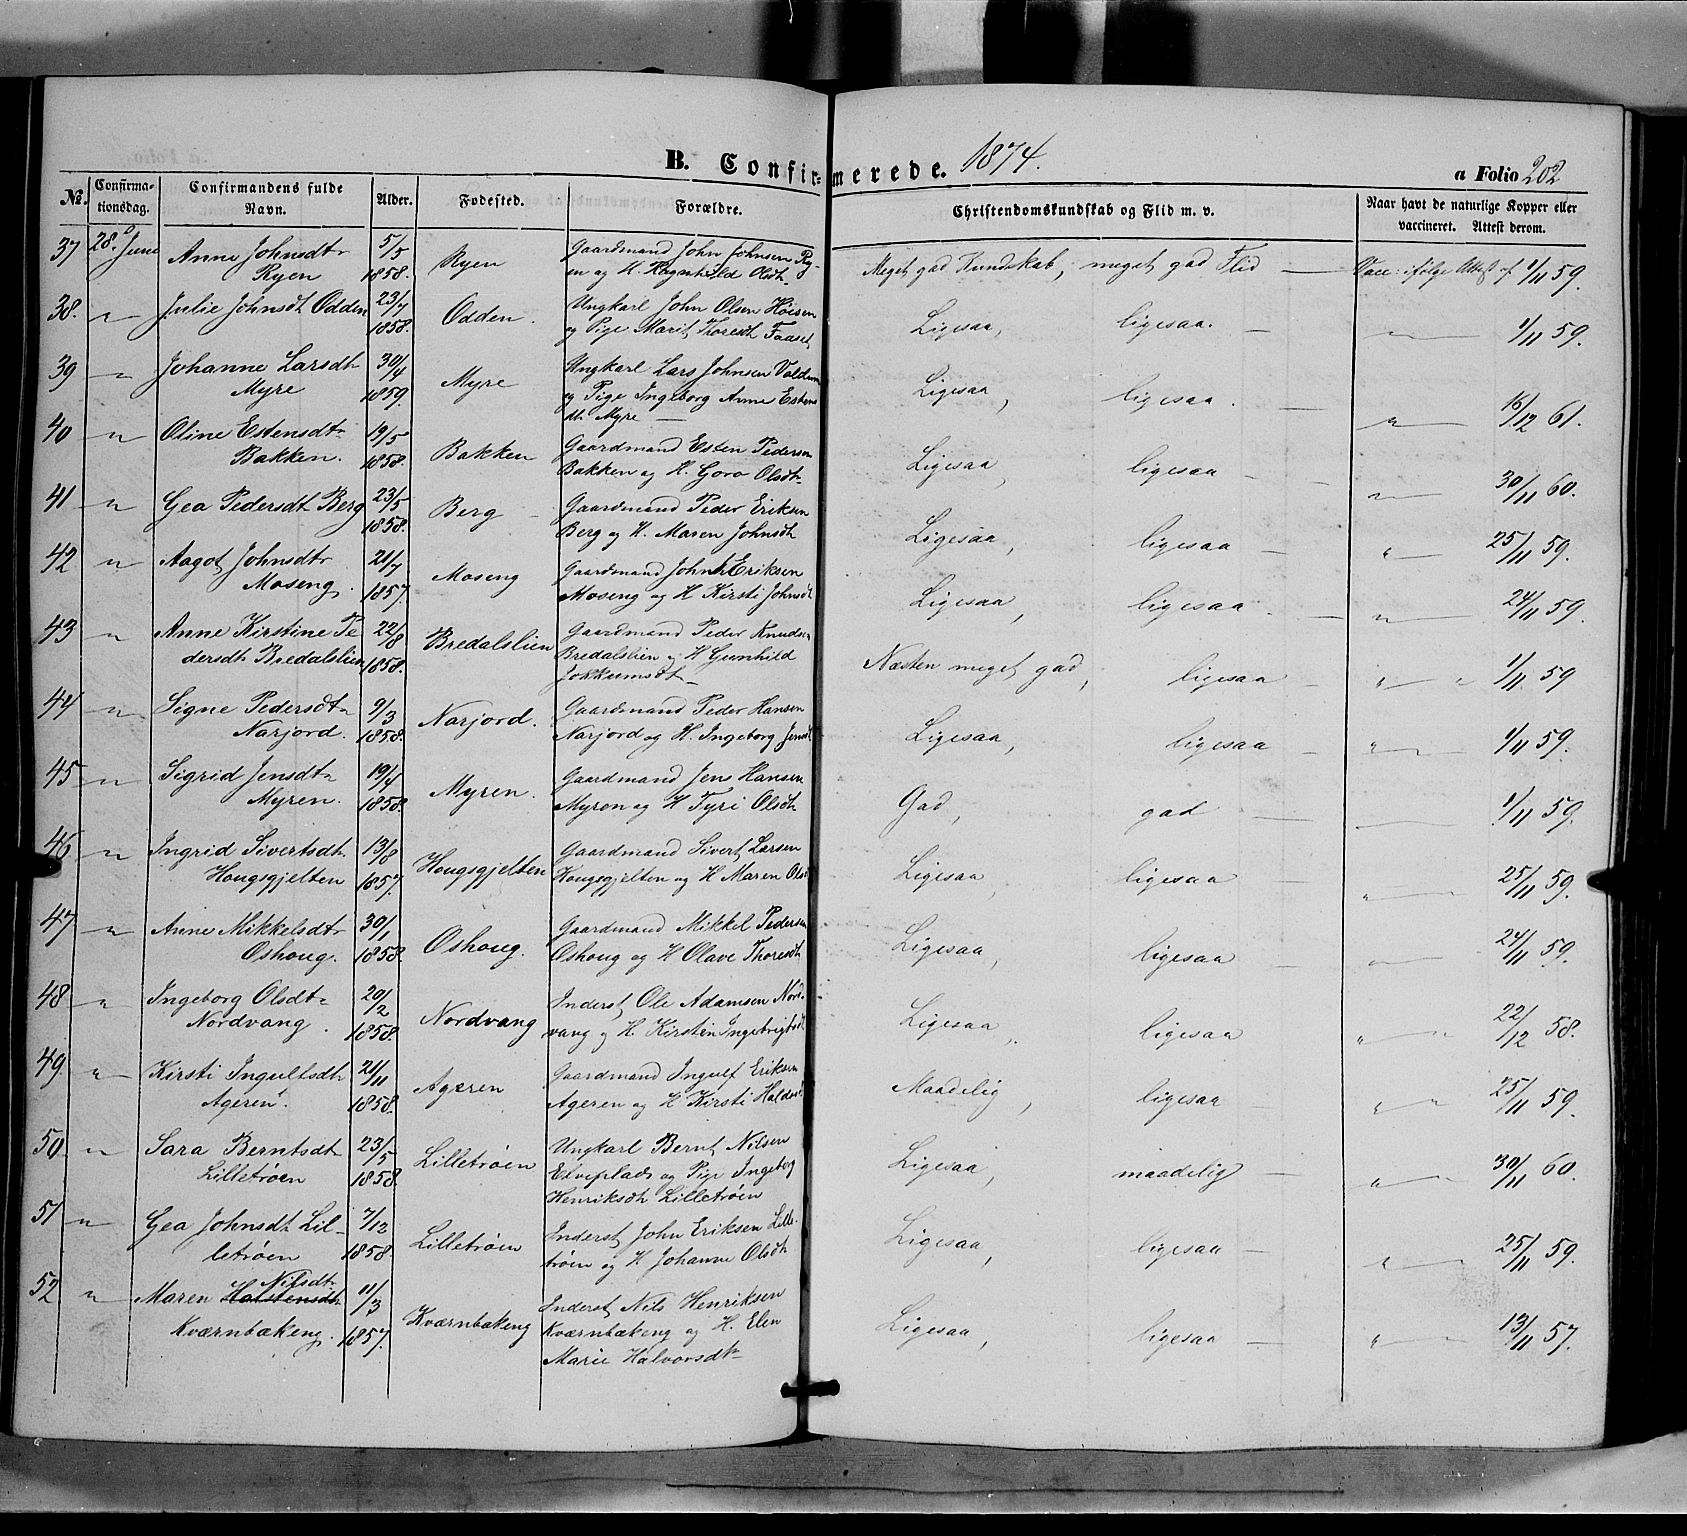 B. Confir-merede. 1874.
a Folio 202
No. Confirma-tionsdag. Confirmandens fulde Navn. Alder. Fødested. Forældre. Christendomskundskab og Flid m. v. Naar havt de naturlige Kopper eller vaccineret. Attest derom.
37 28. Juni Anne Johnsdt Ryen 5/5 1858. Ryen Gaardmand John Johnsen Ry-en og H. Ragnhild Olsdt Meget god Kundskab, meget god Flid — Vacc: ifølge Attest af 1/11 59.
38. " Julie Johnsdt Odden 23/7 1858. Odden. Ungkarl John Olsen Høisen og Pige Marit Thoresdt Faaset Ligesaa, ligesaa. — " 1/11 59.
39 " Johanne Larsdt Myre 30/4 1859. Myre Ungkarl Lars Johnsen Voldum og Pige Ingeborg Anne Estens dt. Myre — Ligesaa, ligesaa. — " 16/12 61.
40 " Oline Estensdt Bakken. 19/5 1858. Bakken Gaardmand Esten Pedersen Bakken og H. Goro Olsdt Ligesaa, ligesaa — " 30/11 60.
41 " Gea Pedersdt Berg 23/5 1858. Berg Gaardmand Peder Eriksen Berg og H. Maren Johnsdt Ligesaa, ligesaa — " 25/11 59.
42 " Aagot Johnsdt Moseng. 21/7 1857. Moseng Gaardmand John Eriksen Moseng og H Kirsti Johnsdt Ligesaa, ligesaa — " 24/11 59.
43 " Anne Kirstine Pe dersdt Bredalslien 22/8 1858. Bredalslien Gaardmand Peder Knudsen Bredalslien og H Gunhild Jokkumsdt Næsten meget god, ligesaa — " 1/11 59
44 " Signe Pedersdt Narjord. 9/3 1858. Narjord. Gaardmand Peder Hansen Narjord og H. Ingeborg Jensdt Ligesaa, ligesaa — " 1/11 59.
45 " Sigrid Jensdt Myren. 19/4 1858. Myren. Gaardmand Jens Hansen Myren og H Tyri Olsdt God, god — 1/11 59.
46 " Ingrid Sivertsdt. Hougsgjelten 13/8 1857. Hougsgjelten Gaardmand Sivert Larsen Hougsgjelten og H Maren Ols Ligesaa, ligesaa — " 25/11 59.
47 " Anne Mikkelsdt Oshoug. 30/1 1858. Oshoug. Gaardmand Mikkel Pedersen Oshoug og H Olave Thoresdt Ligesaa, ligesaa — " 24/11 59.
48 " Ingeborg Olsdt Nordvang. 20/2 1858. Nordvang Inderst Ole Adamsen Nord-vang og H. Kirsten Ingebrigtsdt Ligesaa, ligesaa " 22/12 58.
49 " Kirsti Ingulfsdt Ageren. 21/11 1858. Ageren Gaardmand Ingulf Eriksen Ageren og H Kirsti Haldos Maadelig, ligesaa " 25/11 59.
50 " Sara Berntsdt Lilletrøen 23/5 1858. Lilletrøen Ungkarl Bernt Nilsen Elveplads og Pige Ingeborg Henriksdt Lilletrøen Ligesaa, maadelig — " 30/11 60.
51 " Gea Johnsdt Lil-letrøen 7/12 1858. Lilletrøen Inderst John Eriksen Lille-trøen og H Johanne Olsdt Ligesaa, ligesaa — " 25/11 59.
52 " Maren Halstensdt Nilsdt Kværnbækeng. 11/3 1857. Kværnbækeng Inderst Nils Henriksen Kværnbækeng og H. Elen Marie Halvorsdt Ligesaa, ligesaa — " 13/11 57.